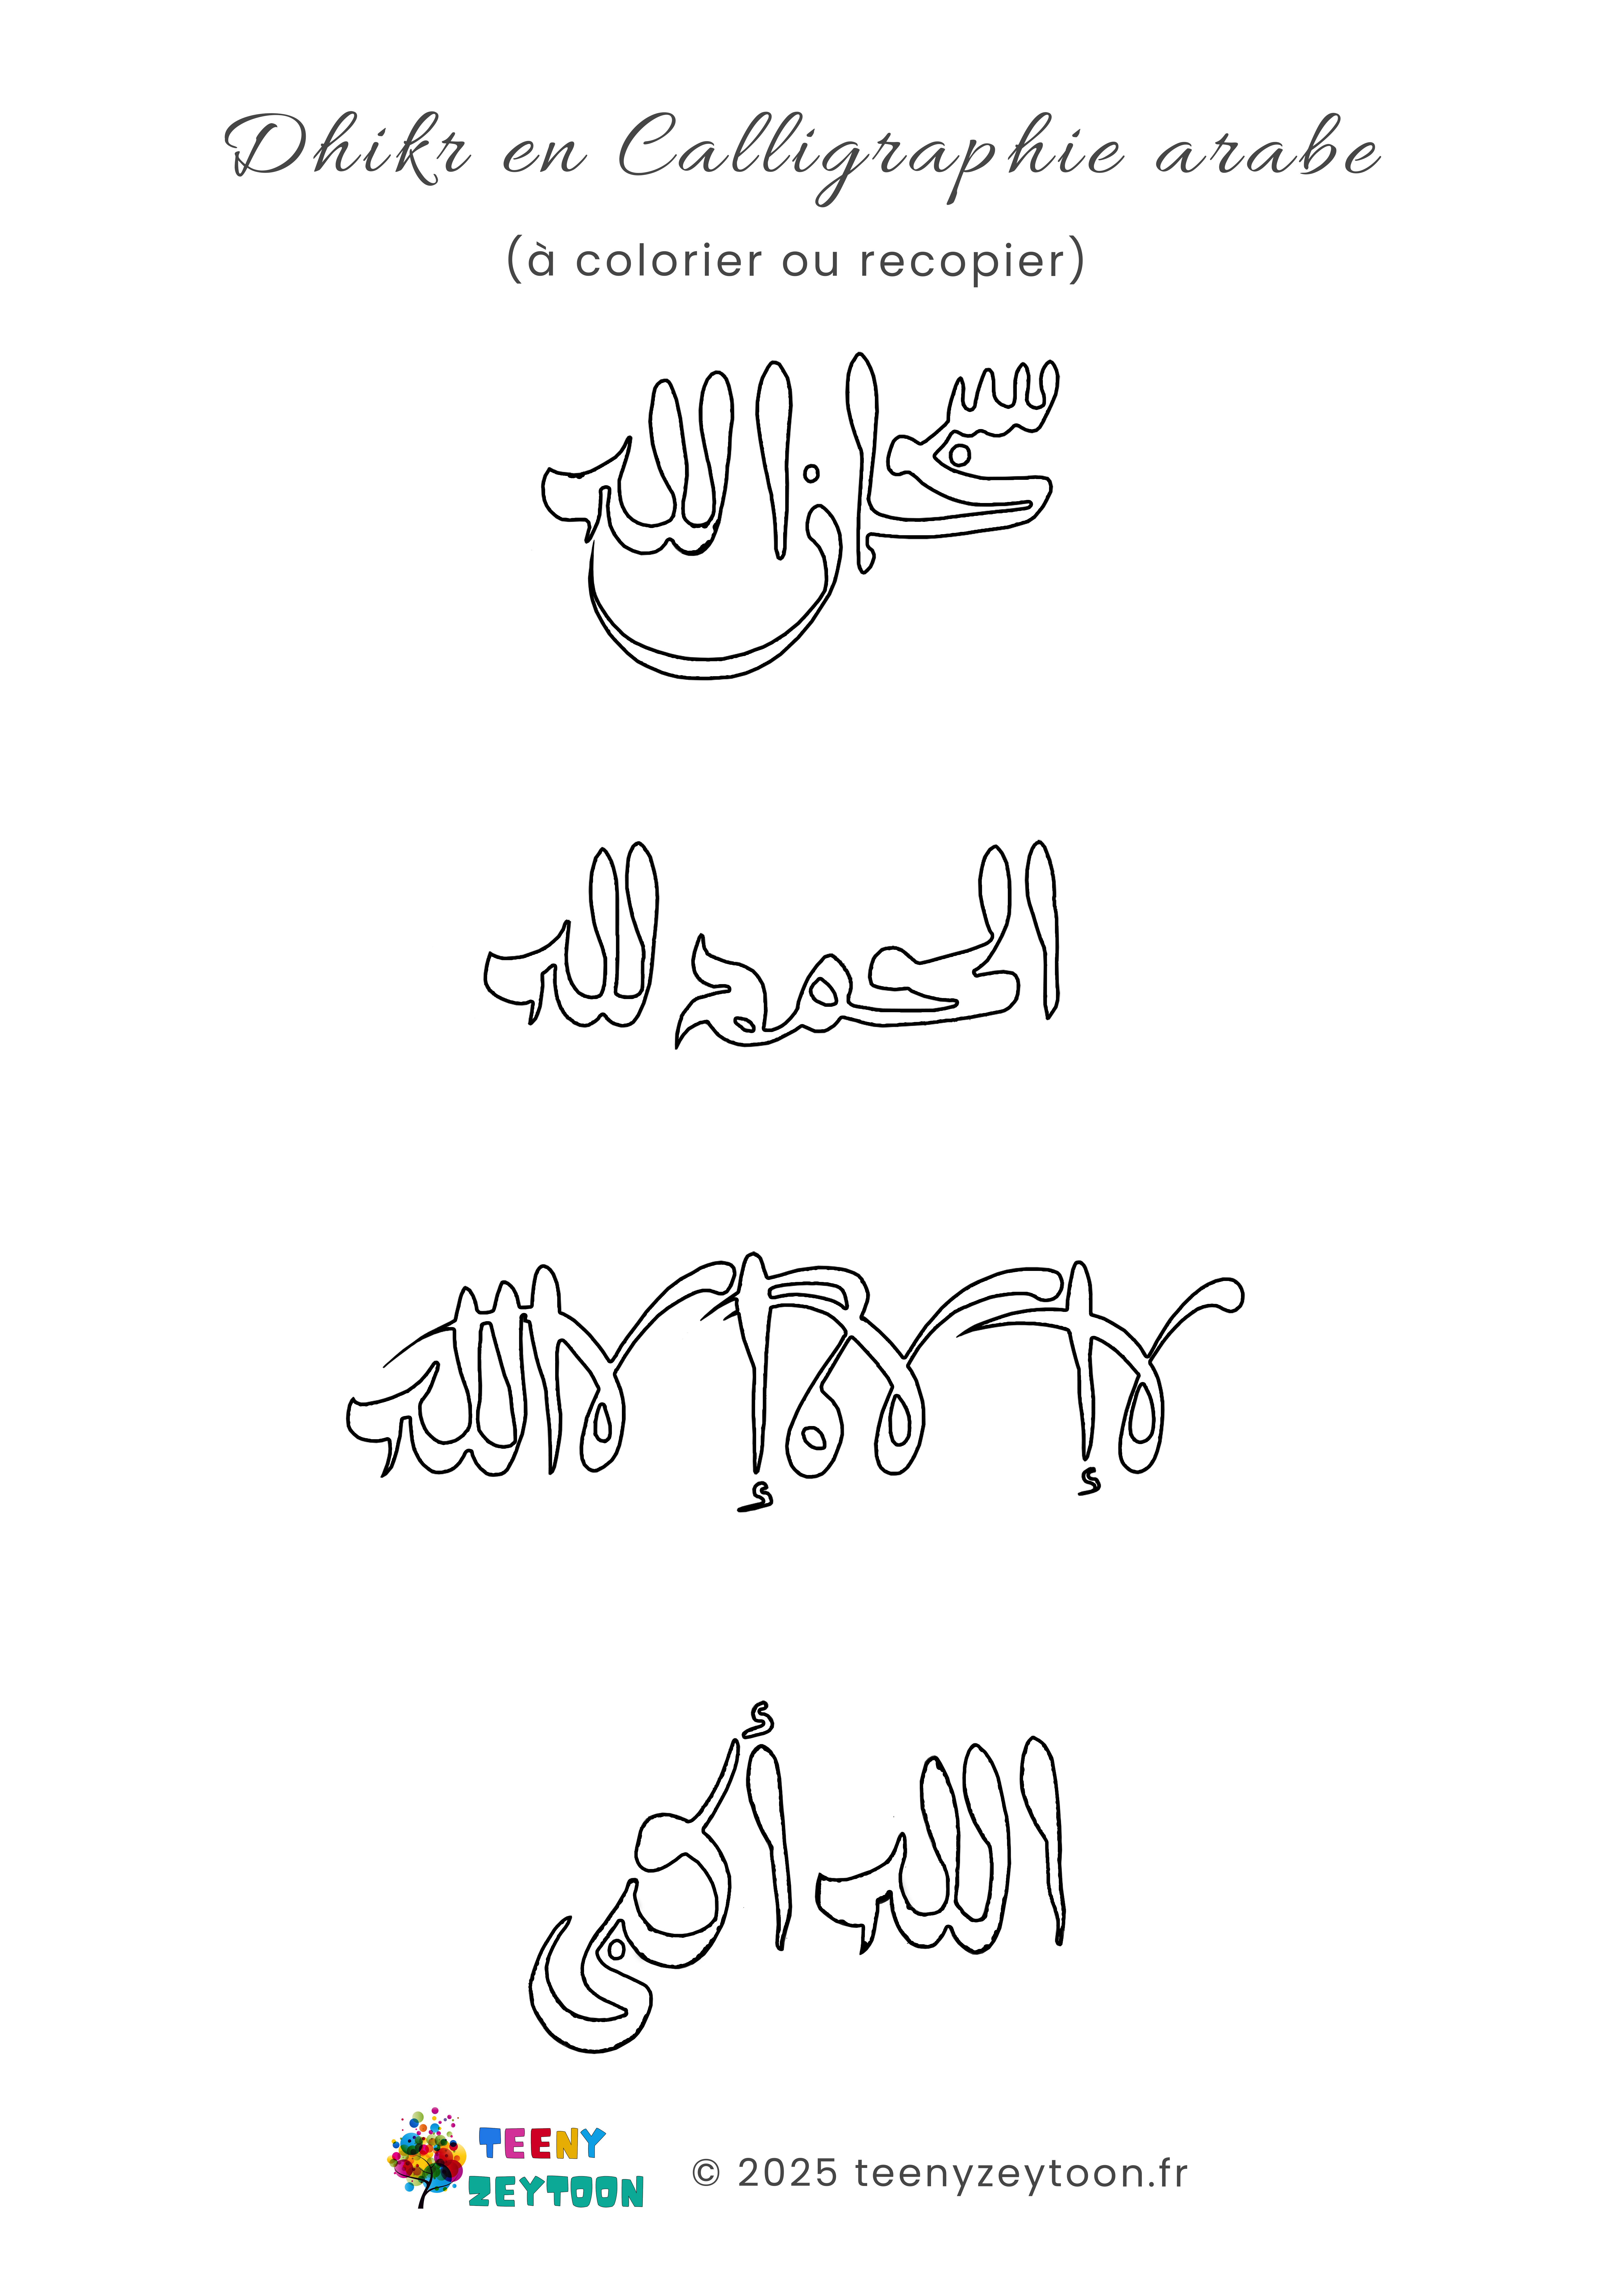 Dhikr en Calligraphie arabe
(à colorier ou recopier)
سبحان الله
الحمد لله
لا إله إلا الله
الله أكبر
TEENY
ZEYTOON
© 2025 teenyzeytoon.fr